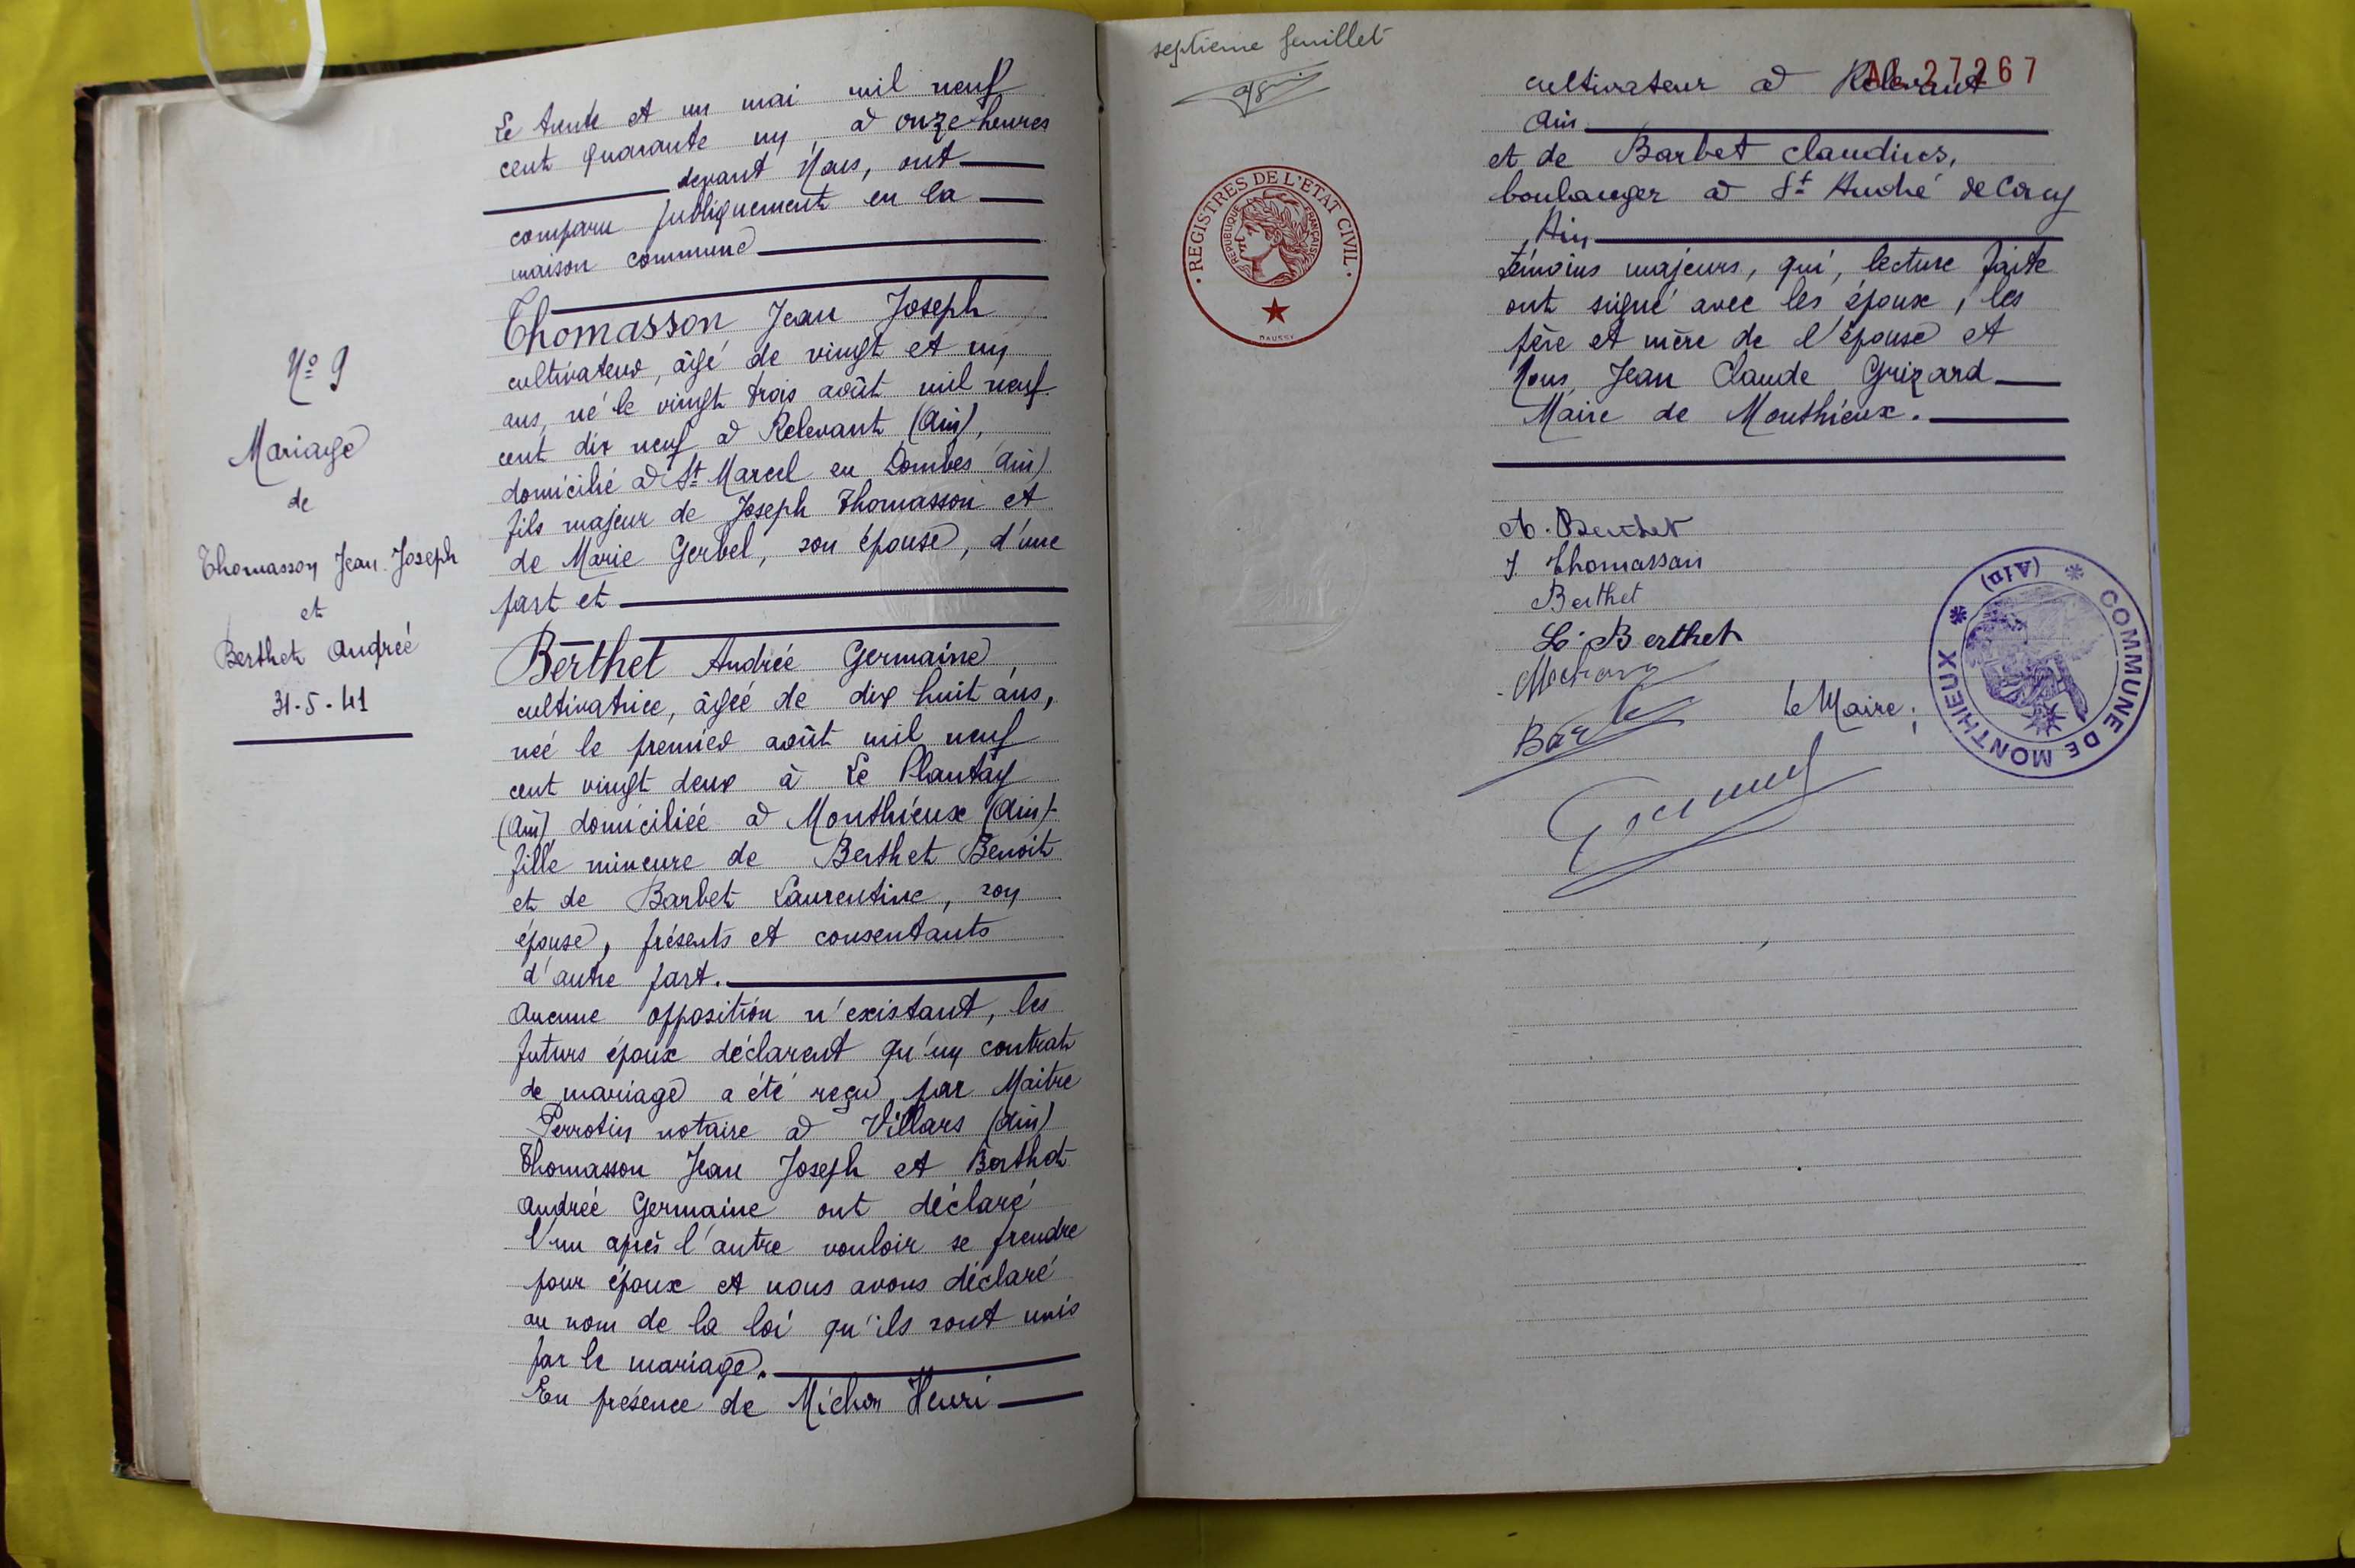 Nº 9
Mariage
de
Thomasson Jean Joseph
et
Berthet Andrée
31-5-41
Le trente et un mai mil neuf
cent quarante un, à onze heures
devant Nous, ont
comparu publiquement en la
maison commune
Thomasson Jean Joseph
cultivateur, âgé de vingt et un
ans, né le vingt trois août mil neuf
cent dix neuf à Relevant (Ain),
domicilié à St Marcel en Dombes (Ain)
fils majeur de Joseph Thomasson et
de Marie Gerbel, son épouse, d'une
part et
Berthet Andrée Germaine,
cultivatrice, âgée de dix huit ans,
née le premier août mil neuf
cent vingt deux à Le Plantay
(Ain) domiciliée à Monthieux (Ain)
fille mineure de Berthet Benoit
et de Barbet Laurentine, son
épouse, présents et consentants
d'autre part.
Aucune opposition n'existant, les
futurs époux déclarent qu'un contrat
de mariage a été reçu par Maitre
Perrotin notaire à Villars (Ain)
Thomasson Jean Joseph et Berthet
Andrée Germaine ont déclaré
l'un après l'autre vouloir se prendre
pour époux et nous avons déclaré
au nom de la loi qu'ils sont unis
par le mariage.
En présence de Michon Henri
septième feuillet
REGISTRES DE L'ETAT CIVIL
REPUBLIQUE FRANÇAISE
DAUSSY
27267
cultivateur à Relevant
Ain
et de Barbet Claudius,
boulanger à St André de Corcy
Ain
témoins majeurs, qui, lecture faite
ont signé avec les époux, les
père et mère de l'épouse et
Nous Jean Claude Grizard
Maire de Monthieux.
A. Berthet
J. Thomasson
Berthet
L. Berthet
Le Maire;
COMMUNE DE MONTHIEUX (Ain)